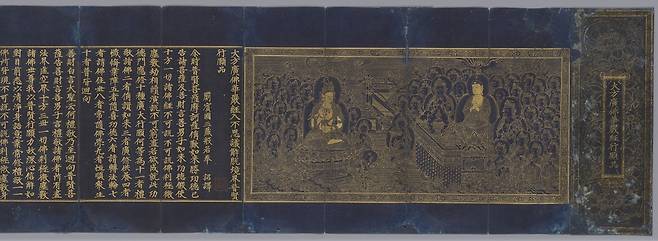 大方廣佛華嚴經行願品
大方廣佛華嚴經入不思議解脫境界普賢
行願品
罽賓國三藏般若奉 詔譯
爾時普賢菩薩摩訶薩稱歎如來勝功德已
告諸菩薩及善財言善男子如來功德假使
十方一切諸佛經不可說不可說佛剎極微
塵數劫相續演說不可窮盡若欲成就此功
德門應修十種廣大行願何等為十一者禮
敬諸佛二者稱讚如來三者廣修供養四者
懺悔業障五者隨喜功德六者請轉法輪七
者請佛住世八者常隨佛學九者恒順衆生
十者普皆迴向
善財白言大聖云何禮敬乃至迴向普賢菩
薩告善財言善男子言禮敬諸佛者所有盡
法界虛空界十方三世一切佛剎極微塵數
諸佛世尊我以普賢行願力故深心信解如
對目前悉以清淨身語意業常修禮敬一一
佛所皆現不可說不可說佛剎極微塵數身